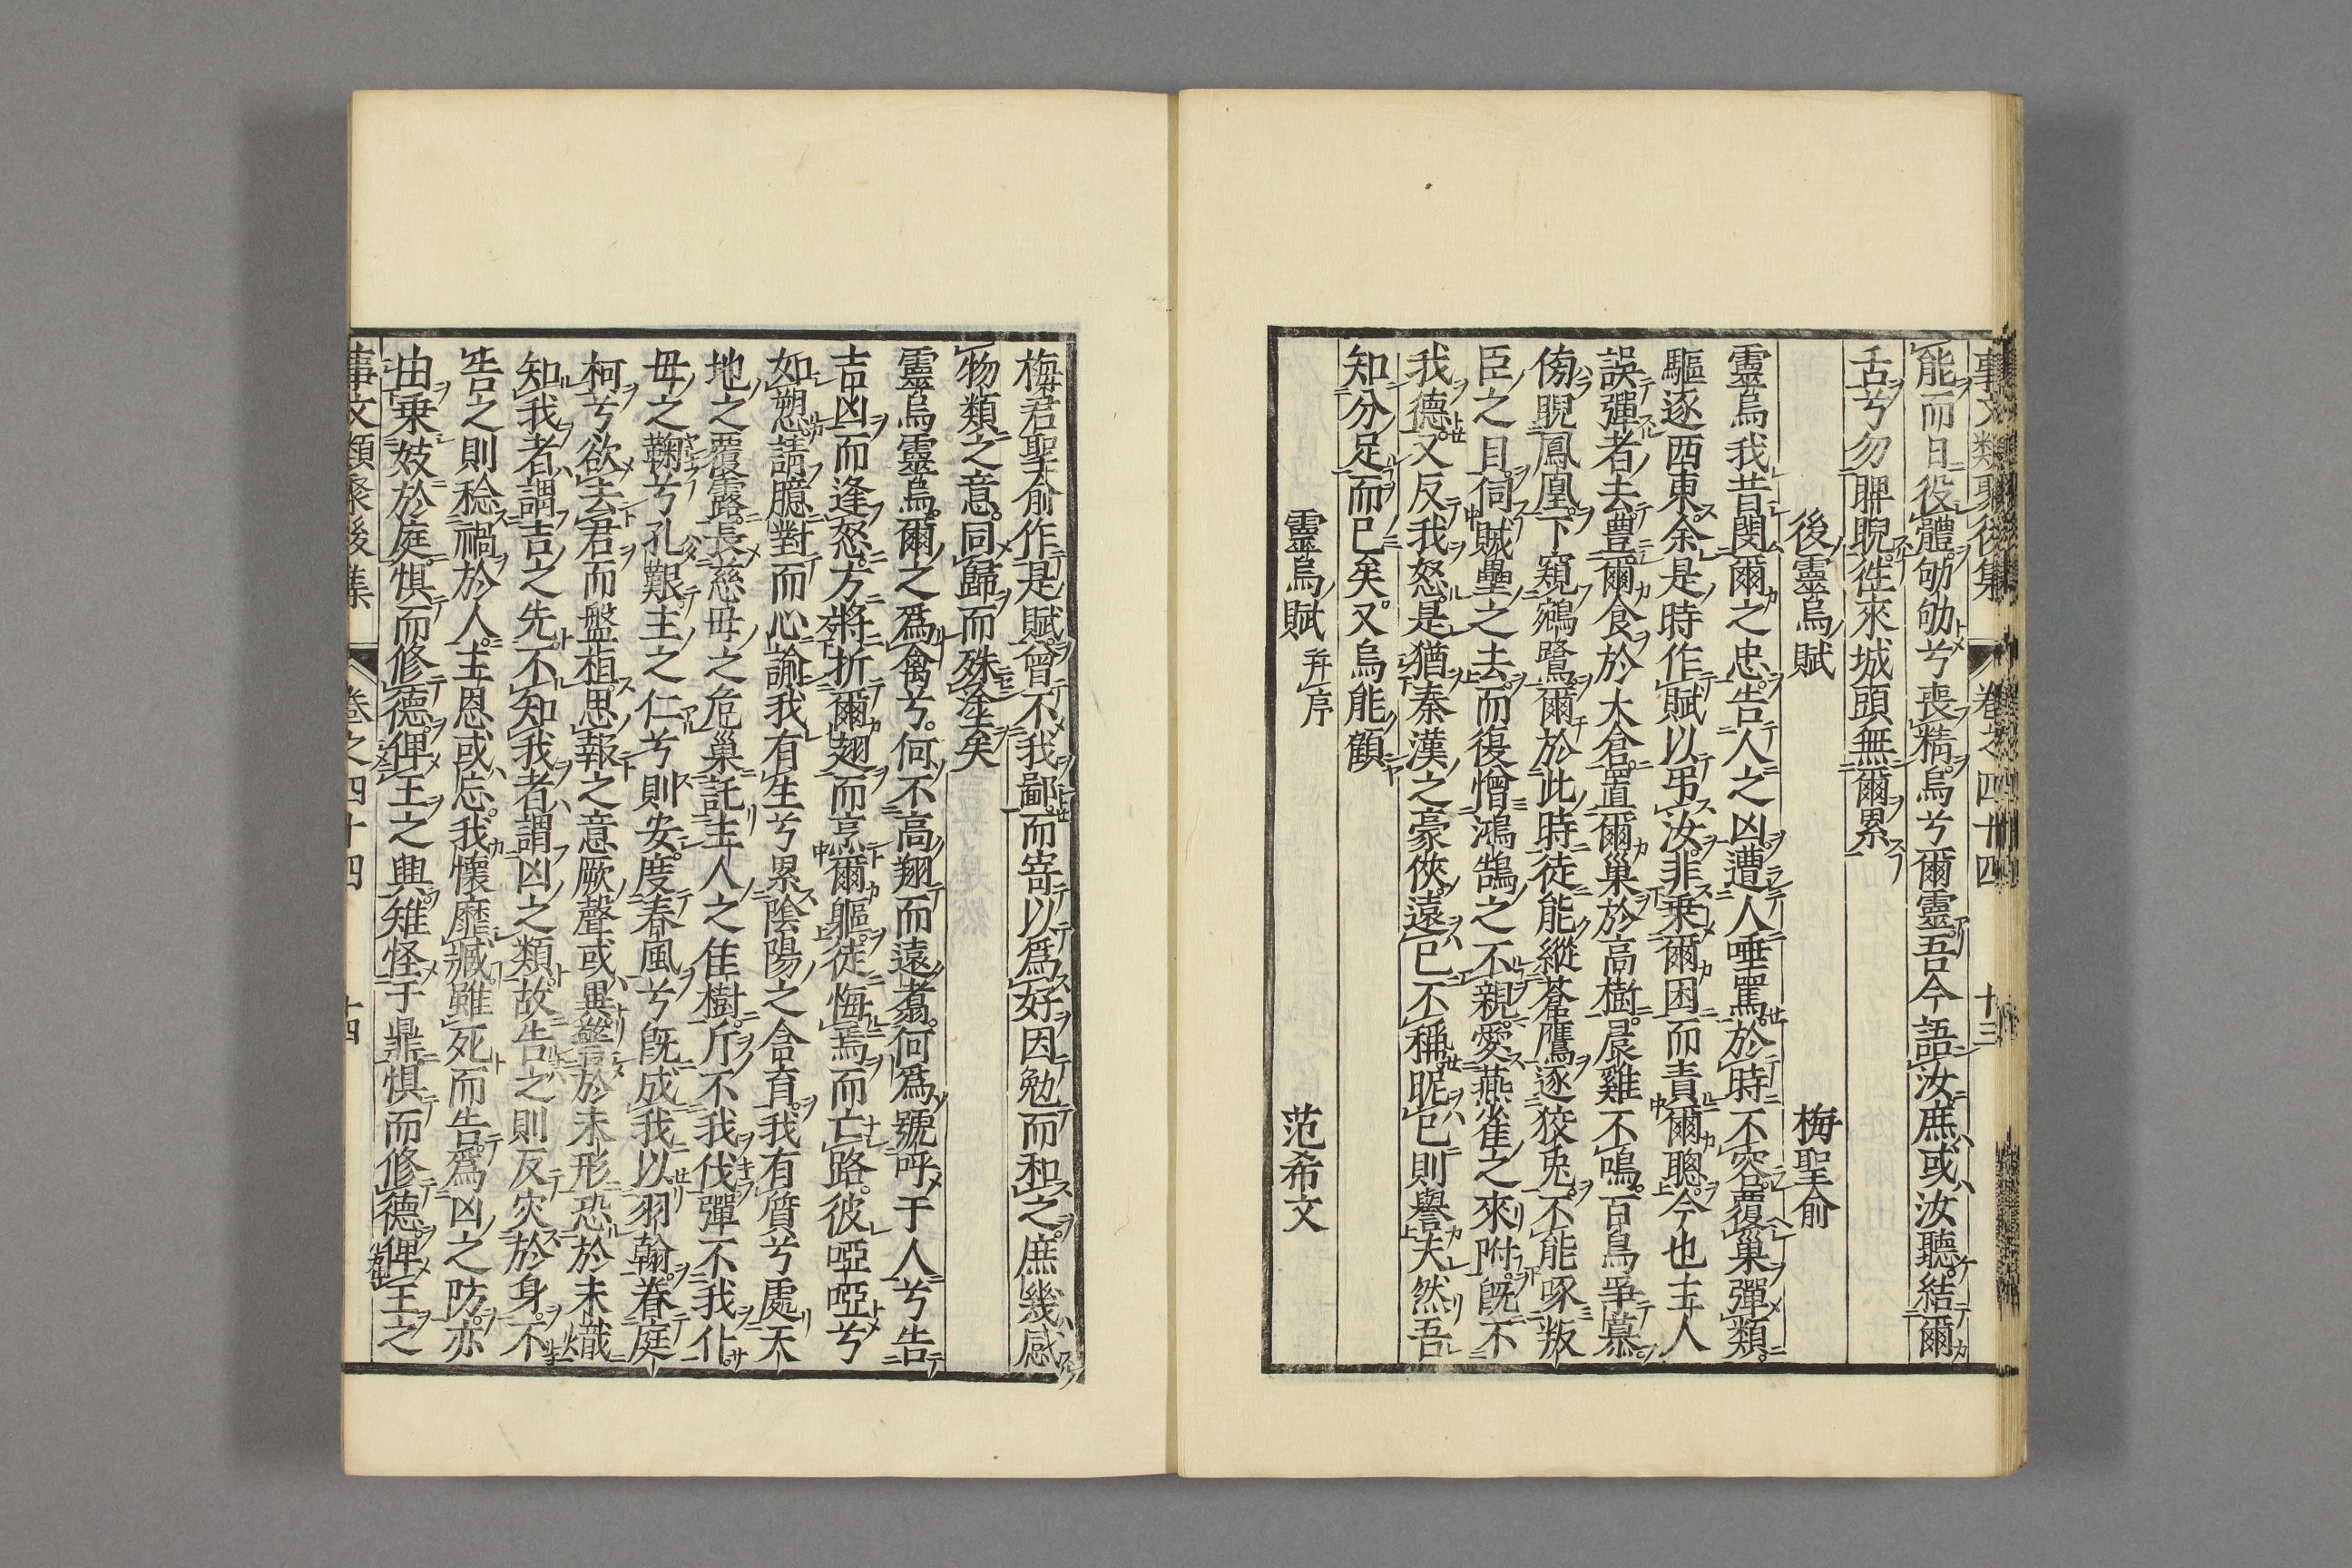 事文類聚後集 卷之四十四 十三
能而日役體劬劬兮喪精烏兮爾靈吾今語汝庶或汝聽結爾
舌兮勿睥睨徃來城頭無爾累
後靈烏賦 梅聖俞
靈烏我昔閔爾之忠告人之凶遭人唾罵於時不容覆巢彈類
驅逐西東余是時作賦以弔汝非乗爾困而責爾聰今也主人
誤彈者去豊爾食於大倉置爾巢於高樹晨雞不鳴百鳥爭慕
傍睨鳳凰下窺鵷鷺爾於此時徒能縱蒼鷹逐狡兎不能啄叛
臣之目伺賊壘之去而復憎鴻鵠之不親愛燕雀之來附既不
我德又反我怒是猶秦漢之豪俠遠已不稱昵已則譽夫然吾
知分足而已矣又烏能顧
靈烏賦 幷序 范希文
梅君聖俞作是賦曾不我鄙而寄以爲好因勉而和之庶幾感
物類之意同歸而殊塗矣
靈烏靈烏爾之爲禽兮何不高翔而遠翥何爲號呼于人兮告
吉凶而逢怒方將折爾翅而烹爾軀徒悔焉而亡路彼啞啞兮
如愬請臆對而心諭我有生兮累陰陽之含育我有質兮處天
地之覆露長慈母之危巢託主人之佳樹斤不我伐彈不我仆
母之鞠兮孔艱主之仁兮則安度春風兮旣成我以羽翰眷庭
柯兮欲去君而盤桓思報之意厥聲或異警於未形恐於未熾
知我者謂吉之先不知我者謂凶之類故告之則反灾於身不
告之則稔禍於人主恩或忘我懷靡臧雖死而告爲凶之防亦
由乗妓於庭惧而修德俾王之興雉怪于鼎惧而修德俾王之
事文類聚後集 卷之四十四 十四